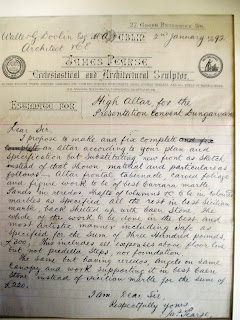 27 Great Brunswick St.
Walter G Doolin Esq M.A. DUBLIN 2nd January 1893
Architect &c &c
JAMES PEARSE
Ecclesiastical and Architectural Sculptor,
ESTIMATE FOR High Altar for the
Presentation Convent Dungarvan
Dear Sir.
I propose to make and fix complete
an altar according to your plan and
specification but substituting new front as sketch
instead of that shewn, material and particulars as
follows - Altar frontal tabernacle carved foliage
and figure work to be of best carrara marble
Panels in reredos shafts of columns &c to be in colored
marbles as specified, all the rest in best sicilian
marble, back sheeted up with caen stone. The
whole of the work to be done in the best and
most artistic manner including safe as
specified for the Sum of three Hundred pounds,
£300. This includes all expenses above floor line
but not predella steps, nor foundation.
The same but having reredos, angels on same
canopy and work supporting it in best caen
Stone instead of sicilian marble for the sum of
I am Dear Sir
Respectfully yours
Jas Pearse